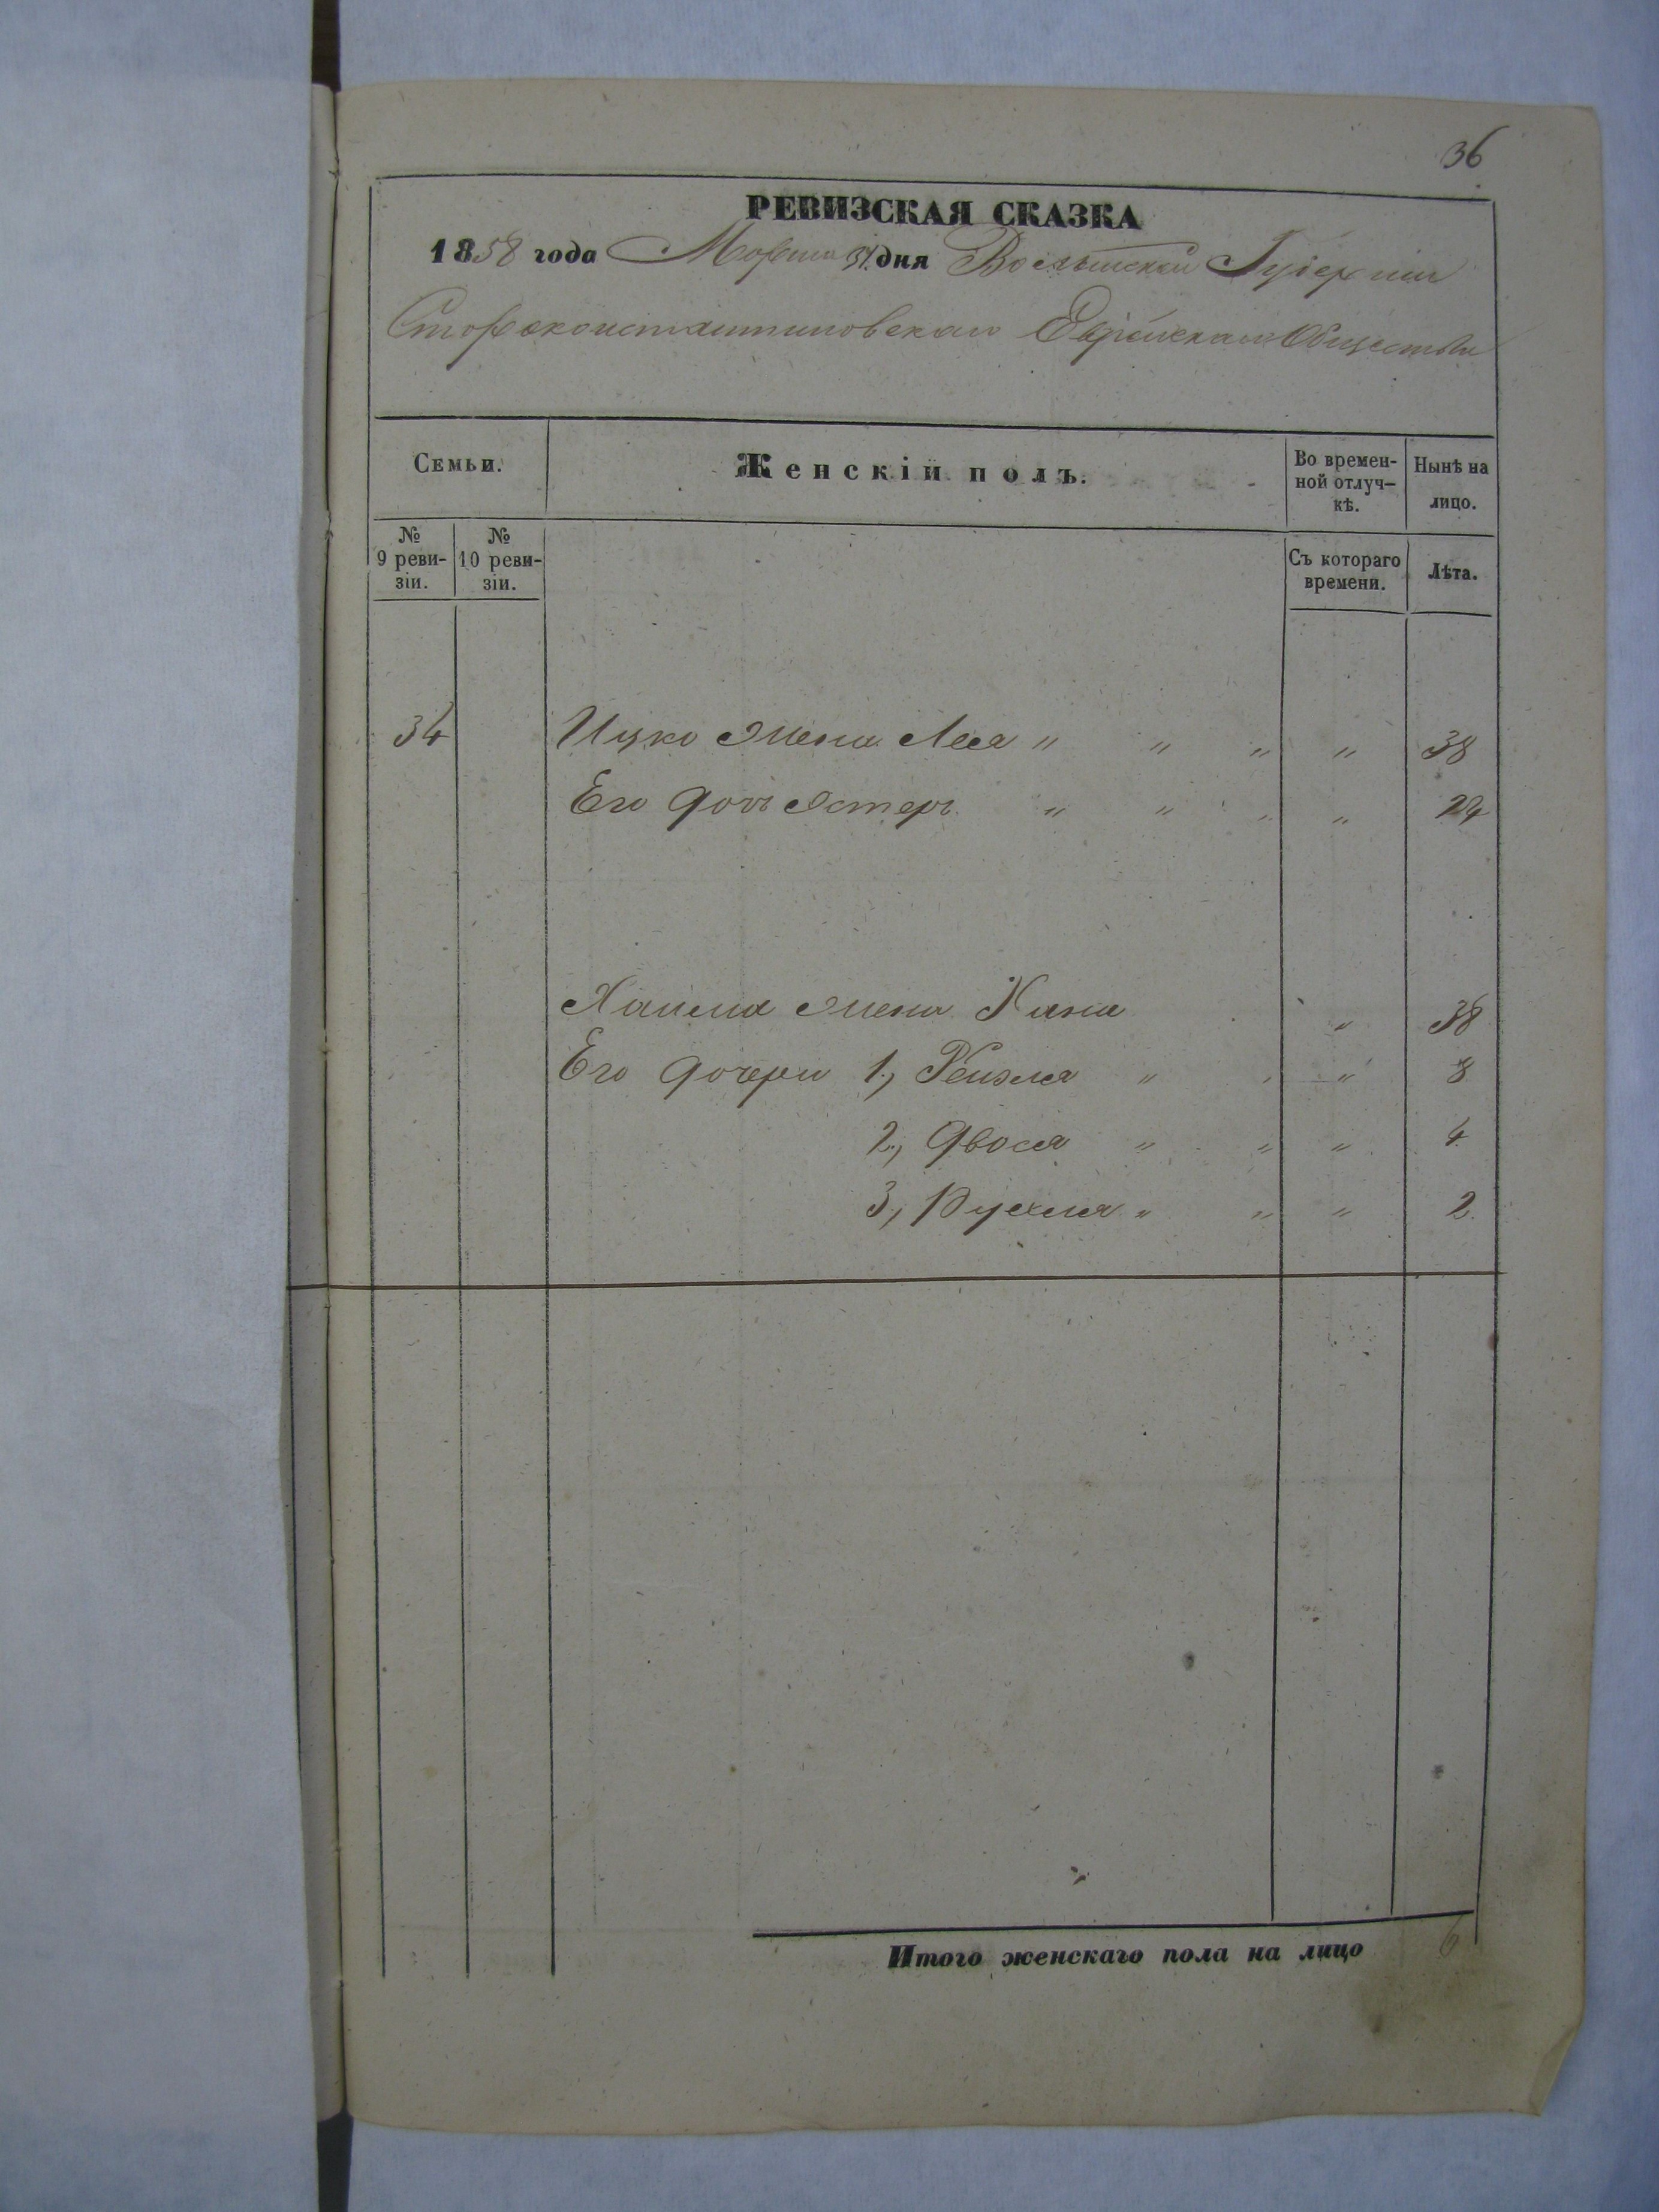 36
РЕВИЗСКАЯ СКАЗКА
1858 года Марта 31 дня Волынской Губерніи
Староконстантиновскаго Еврейскаго Общества
Семьи. Женскій полъ. Во времен-ной отлуч-кѣ. Нынѣ на лицо.
№ 9 реви-зіи. № 10 реви-зіи. Съ котораго времени. Лѣта.
34 Ицко жена Лея " " " " 38
Его дочь Эстеръ " " " " 24
Хаима жена Хана " 38
Его дочери 1, Рейзля " " " 8
2, Двося " " " 4
3, Рухля " " " 2
Итого женскаго пола на лицо 6